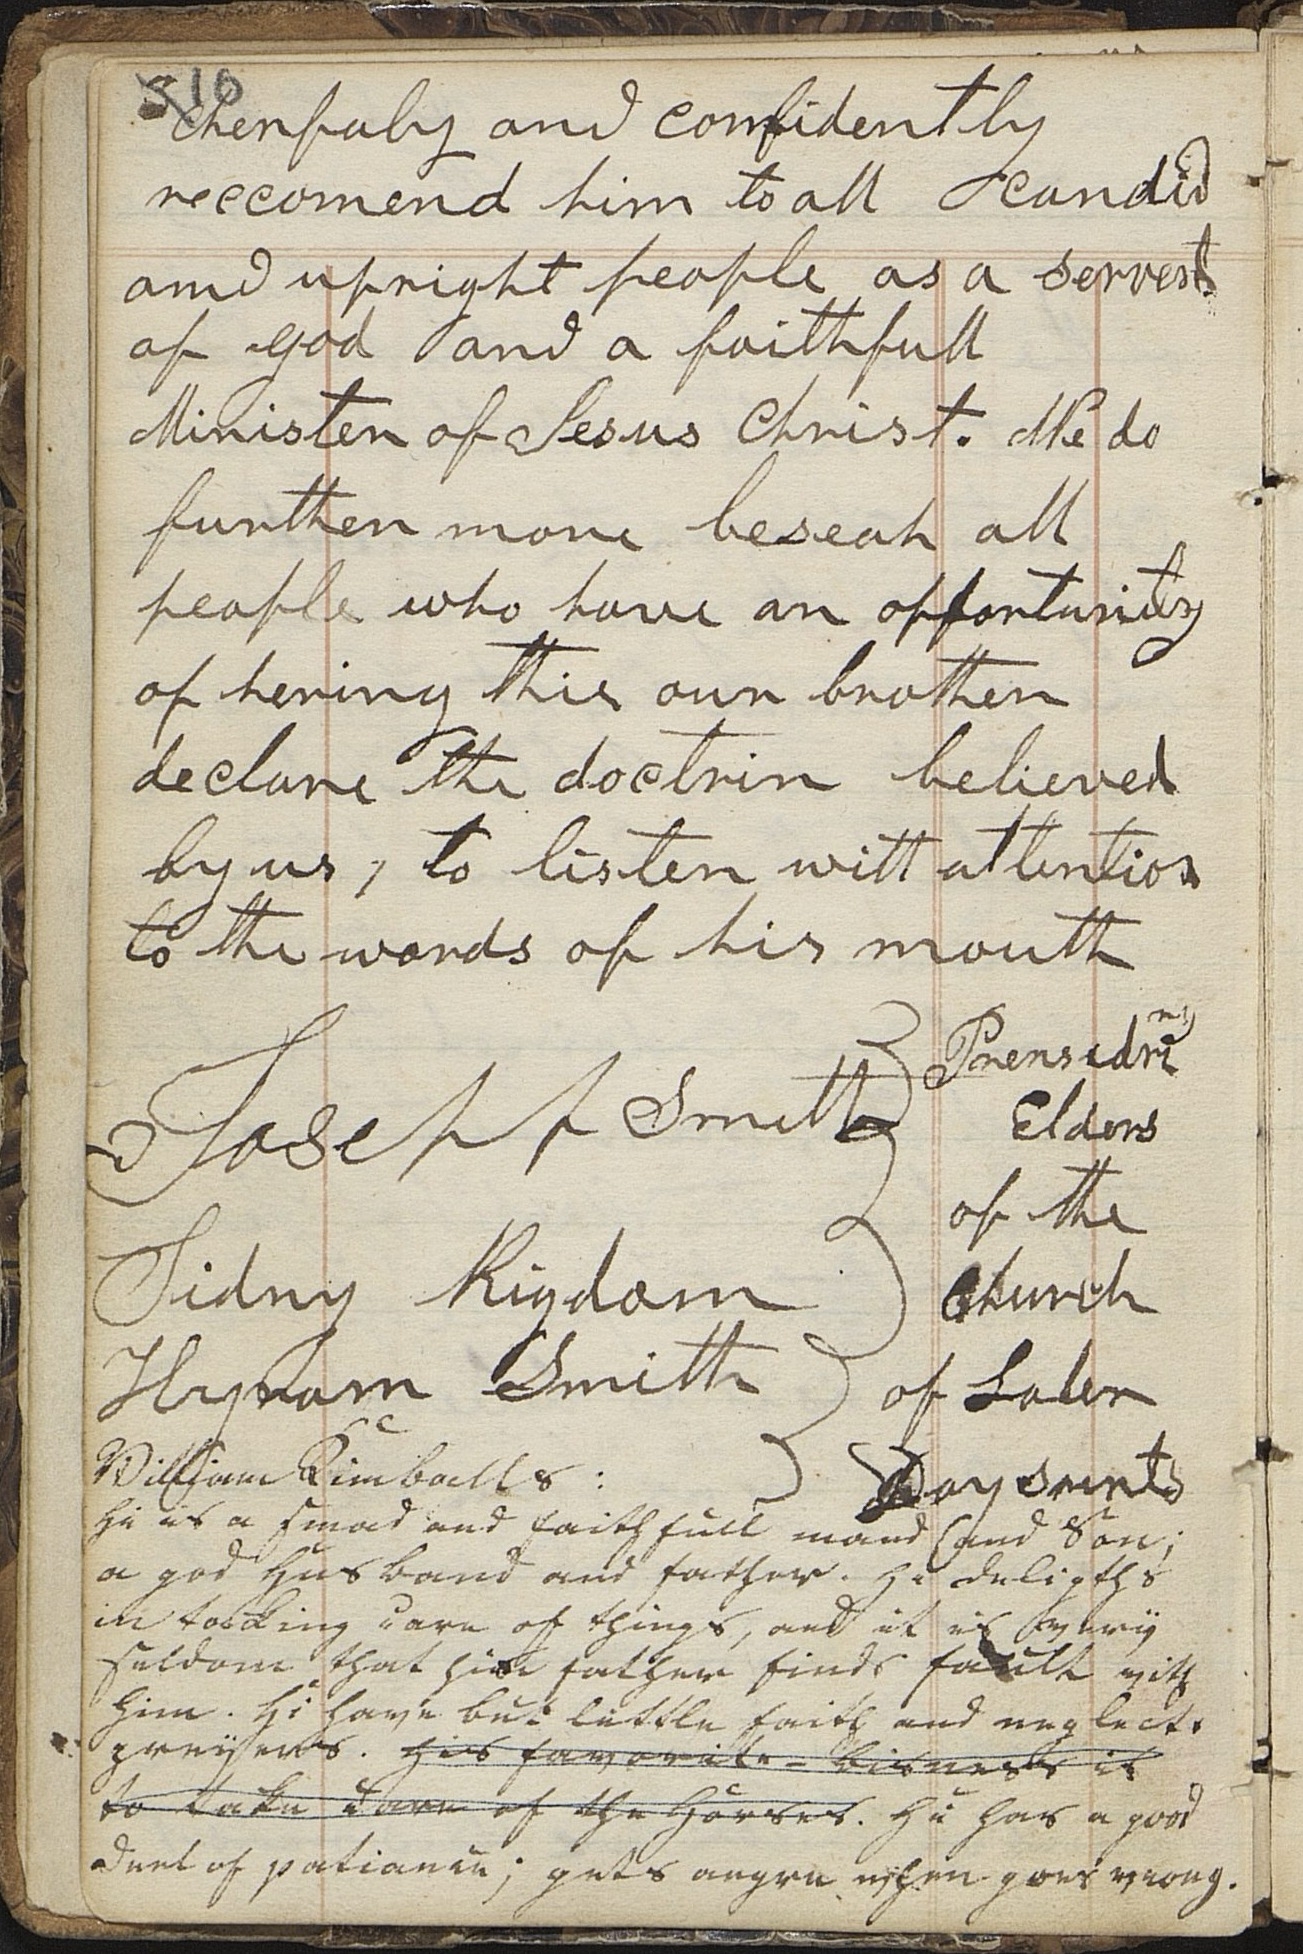 310
cherfuly and confidently
reccomend him to all candid
and upright people as a servent
of god and a faithfull
Minister of Jesus Christ. We do
further more beseah all
people who have an opportunity
of hering this our brother
declare the doctrin believed
by us, to listen with attention
to the words of his mouth
Joseph Smith Prensidri
ng
Elders
of the
Sidny Rigdom Church
Hyram Smith of Later
Day sents
William Kimballs:
He is a smad and faithfull mand and Son;
a god Husband and father. He deligths
in tacking care of things, and it is very
seldom that his father finds fault with
him. Hi have but little faith and neglects
preyers. His favorite bisness is
to take care of the Horses. He has a good
deel of patiance; gets angre when goes wrong.